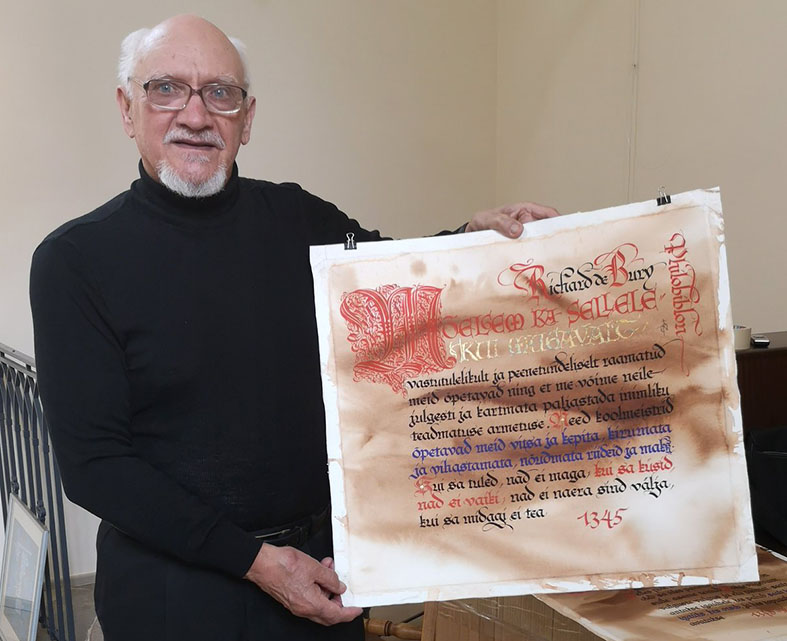 Richard de Bury
Philobiblon
Mõelgem ka sellele
kui mugavalt
vastutulelikult ja peenetundeliselt raamatud
meid õpetavad ning et me võime neile
julgesti ja kartmata paljastada inimliku
teadmatuse armetuse. Need koolmeistrid
õpetavad meid vitsa ja kepita, kirumata
ja vihastamata, nõudmata riideid ja maksu.
Kui sa tuled, nad ei maga, kui sa küsid,
nad ei vaiki, nad ei naera sind välja,
kui sa midagi ei tea
1345